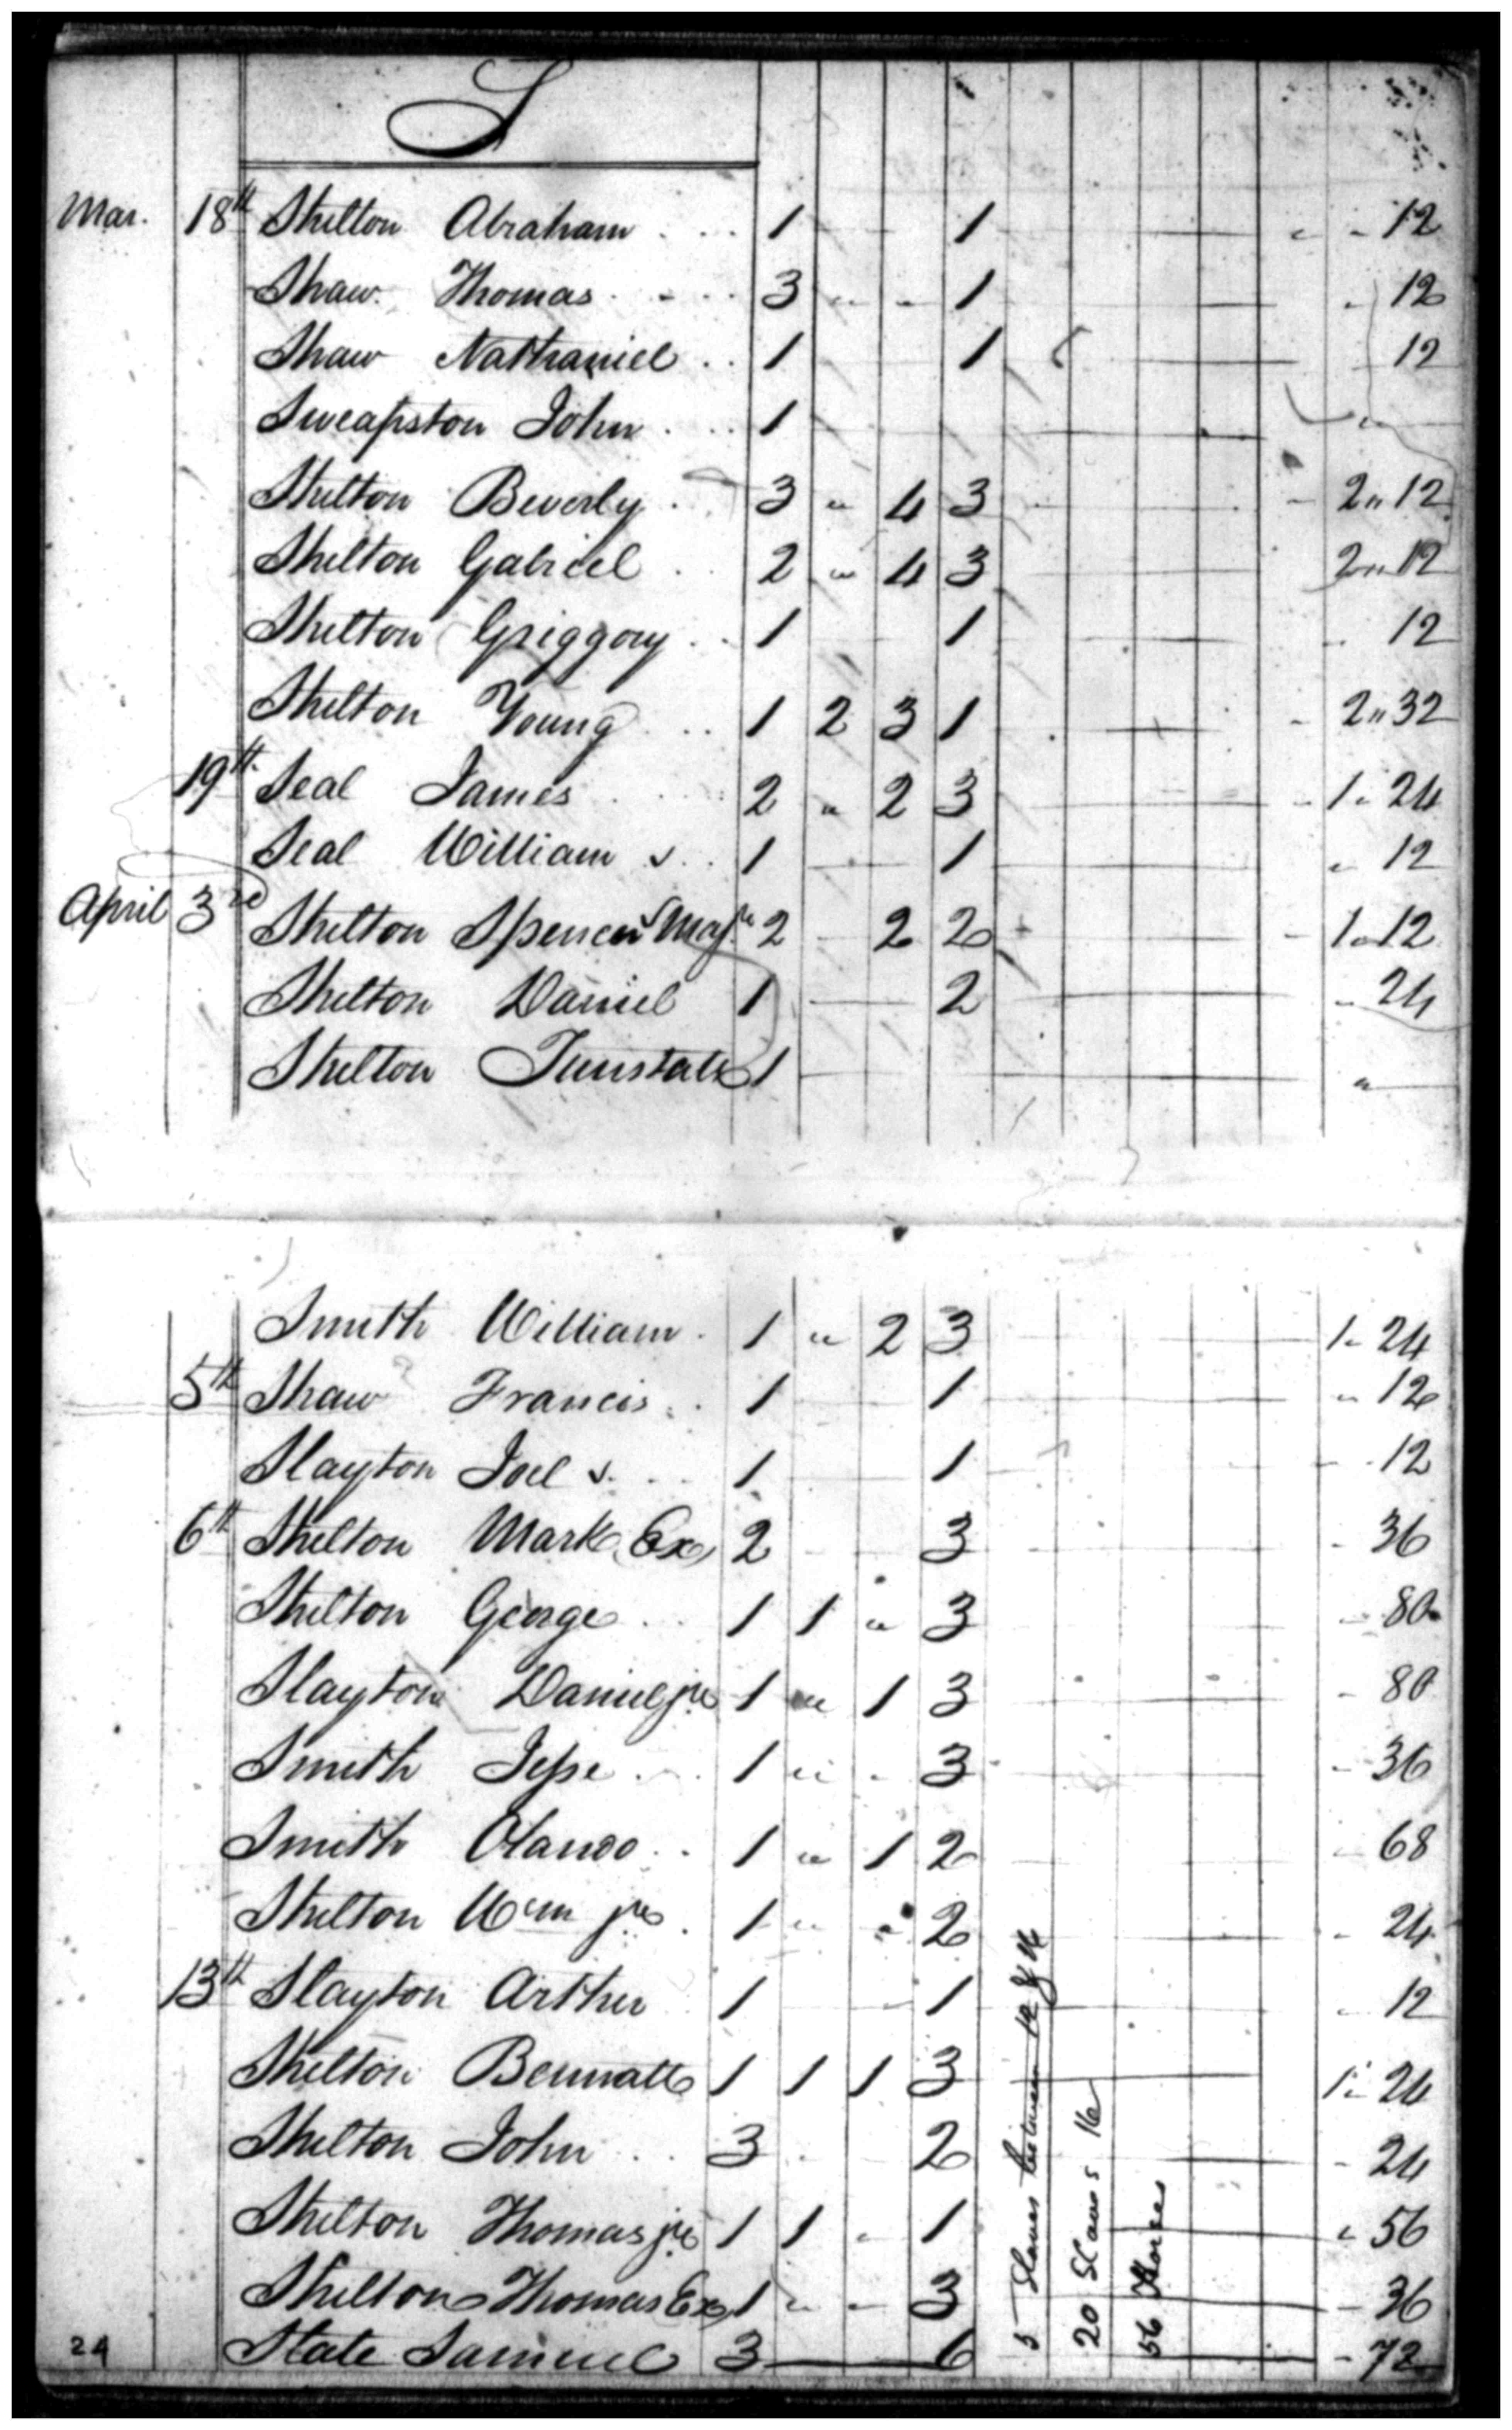 S
Mar. 18th Shelton Abraham 1 1 12
Shaw Thomas 3 " " 1 12
Shaw Nathaniel 1 1 12
Sweapston John 1
Shelton Beverly 3 " 4 3 2" 12
Shelton Gabriel 2 " 4 3 2" 12
Shelton Griggory 1 1 12
Shelton Young 1 2 3 1 2" 32
19th Seal James 2 " 2 3 1" 24
Seal William s. 1 1 " 12
April 3rd Shelton Spencer 2 2 2 1" 12
Shelton Daniel 1 2 24
Shelton 1 "
Smith William 1 " 2 3 1" 24
5th Shaw Francis 1 1 " 12
Slayton Joel s. 1 1 12
6th Shelton Mark Ex 2 3 36
Shelton George 1 1 " 3 80
Slayton Daniel jr 1 " 1 3 80
Smith Jesse 1 " 3 36
Smith 1 " 1 2 68
Shelton Wm jr 1 " " 2 24
13th Slayton Arther 1 1 12
Shelton Bennatt 1 1 1 3 1" 24
Shelton John 3 2 24
Shelton Thomas jr 1 1 " 1 " 56
Shelton Thomas Ex 1 " " 3 36
Slate Samuel 3 6 72
5 Slaves between 12 & 16
20 Slaves 16
56 Horses
24